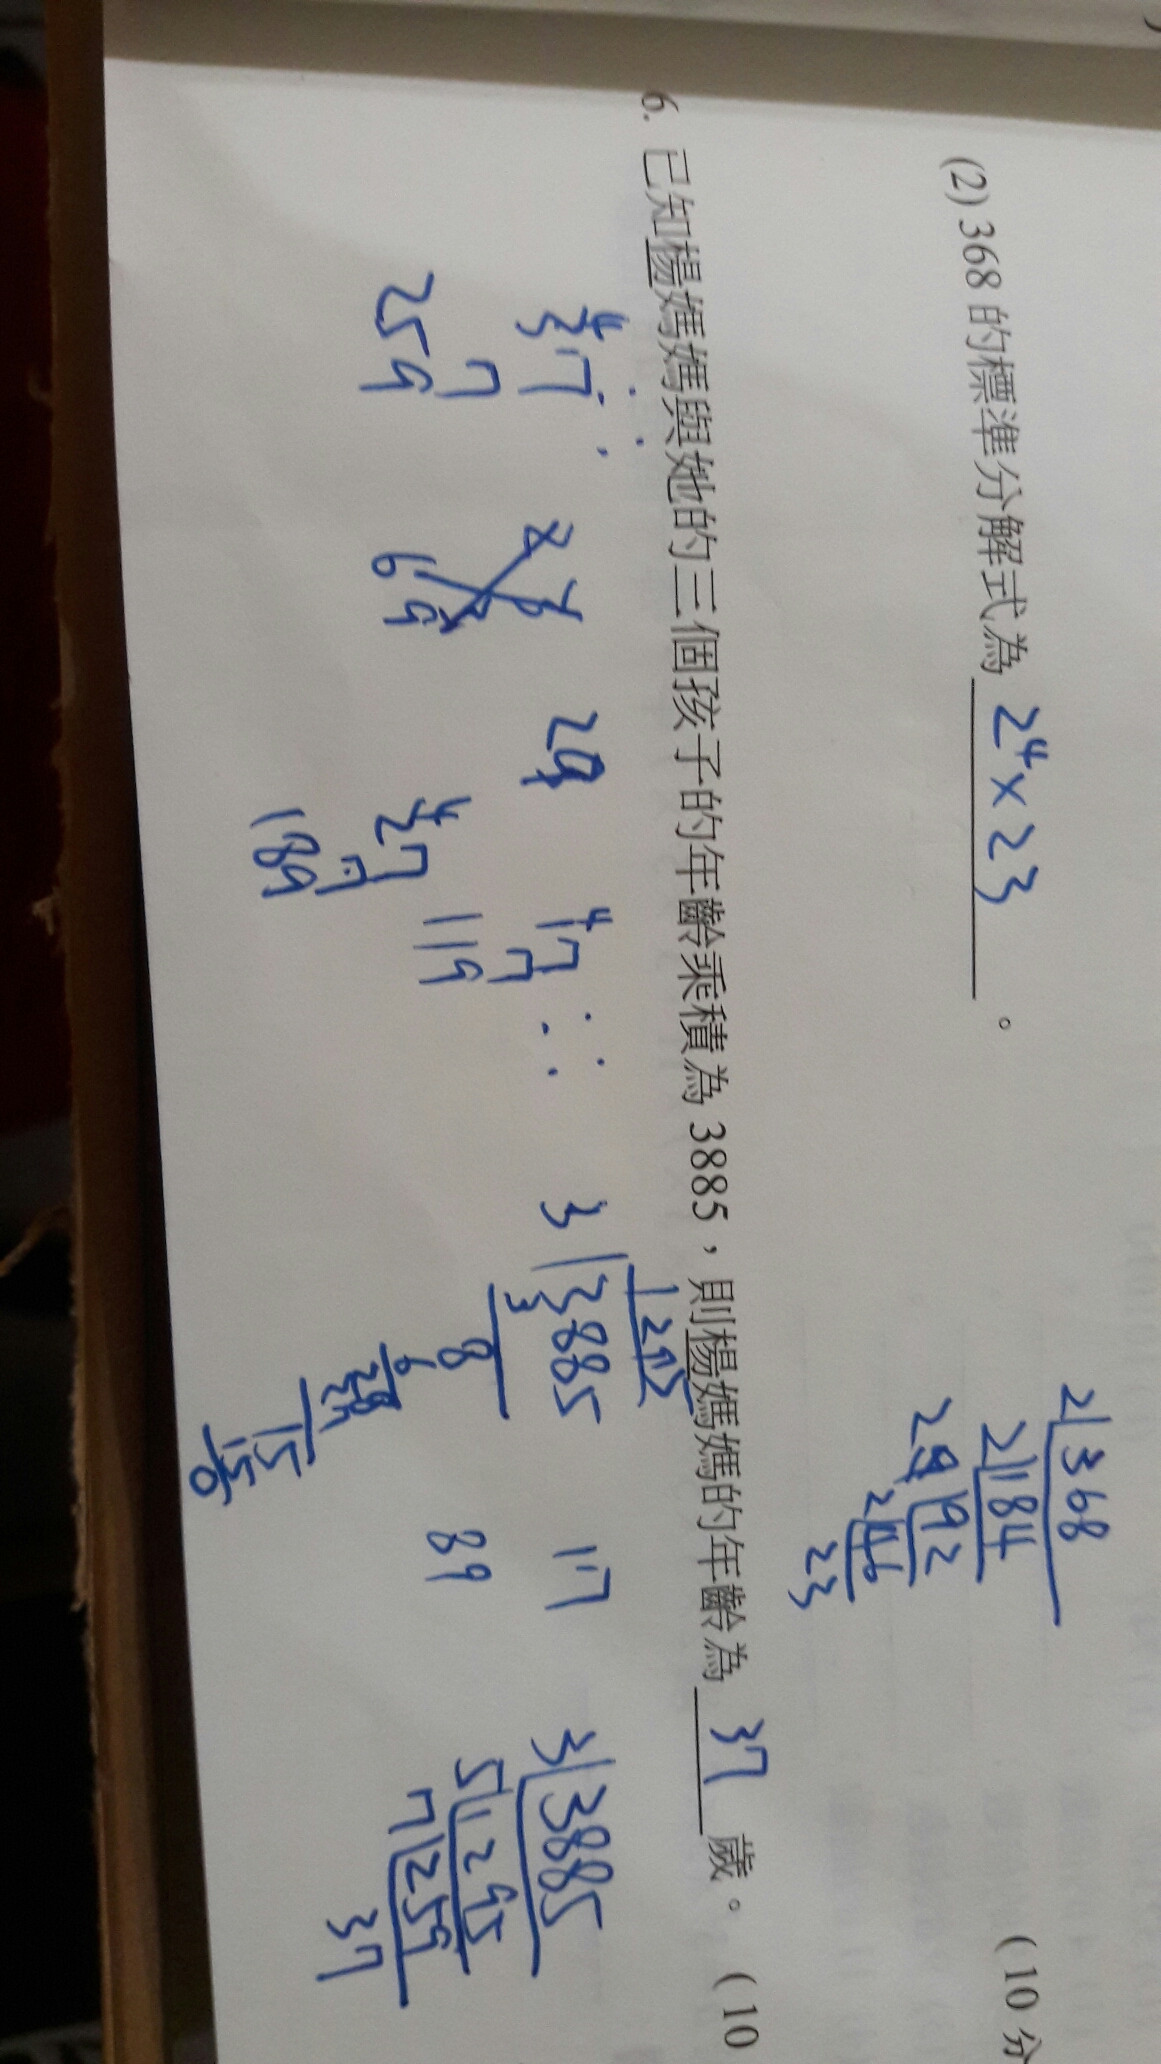 (2) 368 的標準分解式為 2⁴×23 。 (10 分
2 368
2 184
2 92
2 46
23
6. 已知楊媽媽與她的三個孩子的年齡乘積為 3885，則楊媽媽的年齡為 37 歲。 (10
4
37
7
259
69
29
4
27
7
189
4
17
7
119
3 3885
3
8
6
28
15
15
0
17
89
3 3885
5 1295
7 259
37